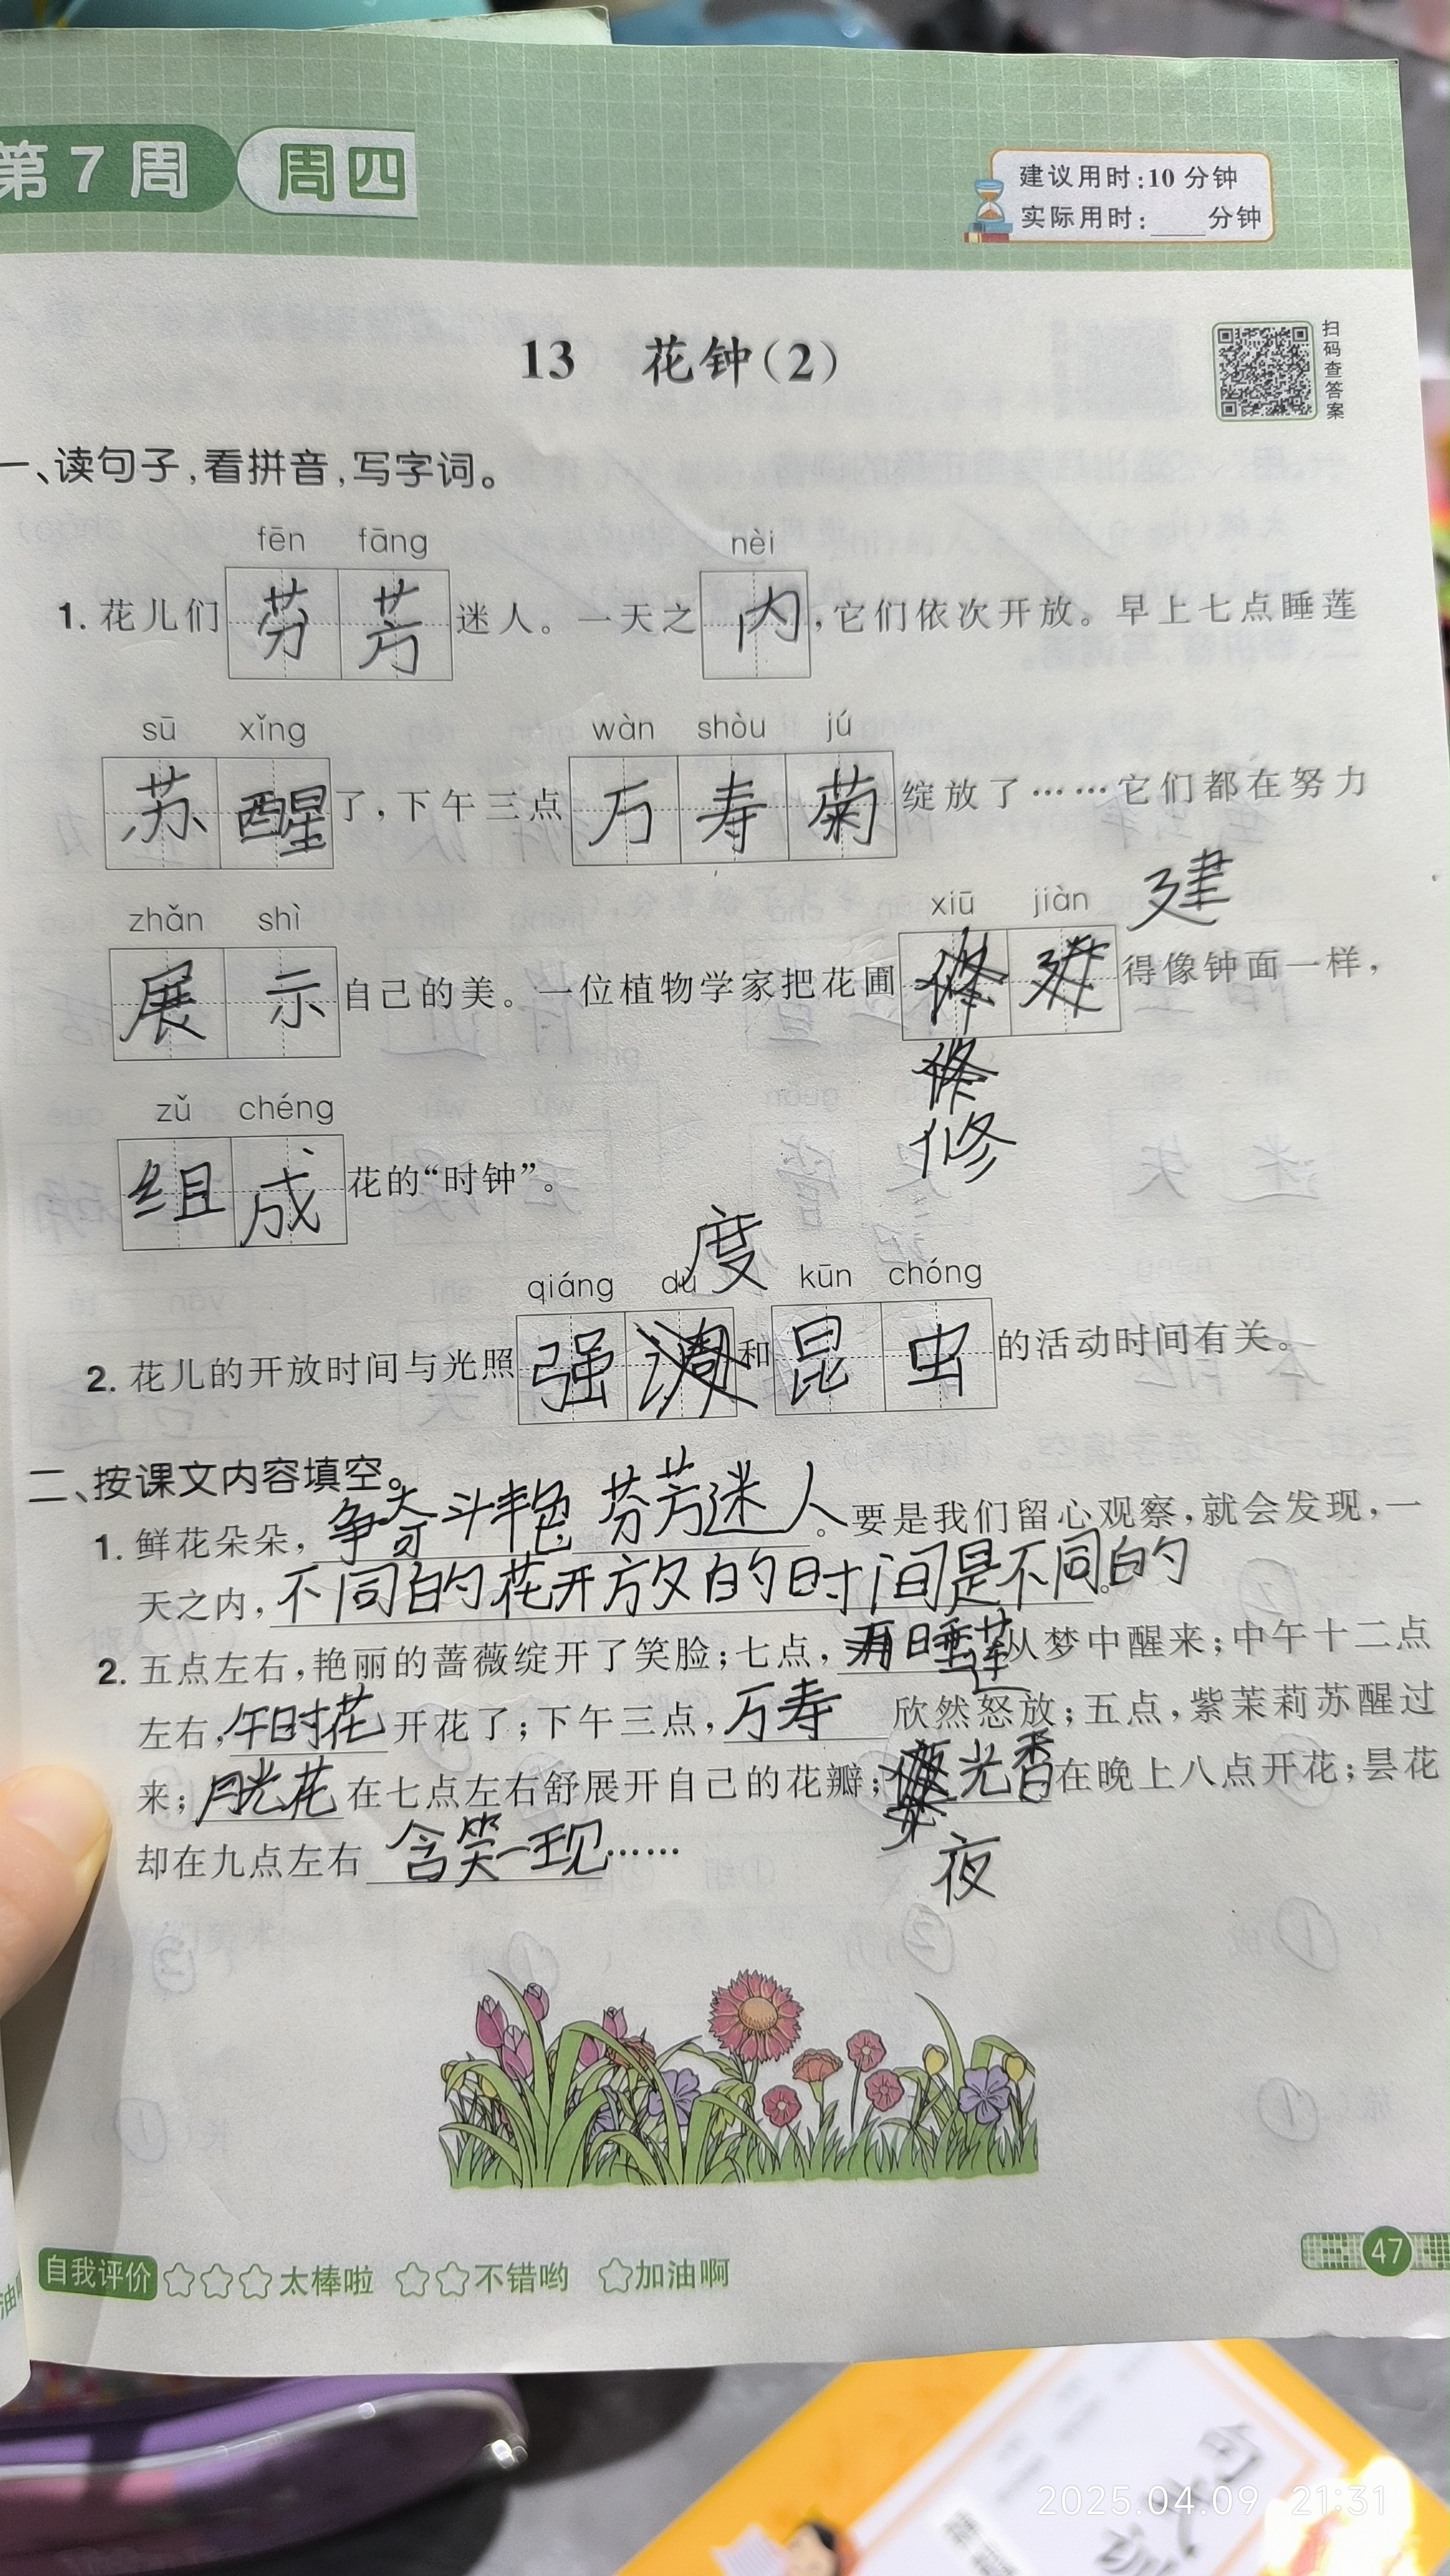 第7周 周四
建议用时:10分钟
实际用时:____分钟
13 花钟(2)
扫码查答案
一、读句子,看拼音,写字词。
fēn fāng nèi
1. 花儿们芬芳迷人。一天之内,它们依次开放。早上七点睡莲
sū xǐng wàn shòu jú
苏醒了,下午三点万寿菊绽放了……它们都在努力
zhǎn shì xiū jiàn 建
展示自己的美。一位植物学家把花圃得像钟面一样,
修
zǔ chéng
组成花的“时钟”。
度
qiáng dù kūn chóng
2. 花儿的开放时间与光照强和昆虫的活动时间有关。
二、按课文内容填空。
1. 鲜花朵朵,争奇斗艳色 芬芳迷人。要是我们留心观察,就会发现,一
天之内,不同的花开放的时间是不同的。
2. 五点左右,艳丽的蔷薇绽开了笑脸;七点,睡莲从梦中醒来;中午十二点
左右,午时花开花了;下午三点,万寿欣然怒放;五点,紫茉莉苏醒过
来;月光花在七点左右舒展开自己的花瓣;光香在晚上八点开花;昙花
却在九点左右含笑一现……
夜
自我评价 ☆☆☆太棒啦 ☆☆不错哟 ☆加油啊
47
2025.04.09 21:31